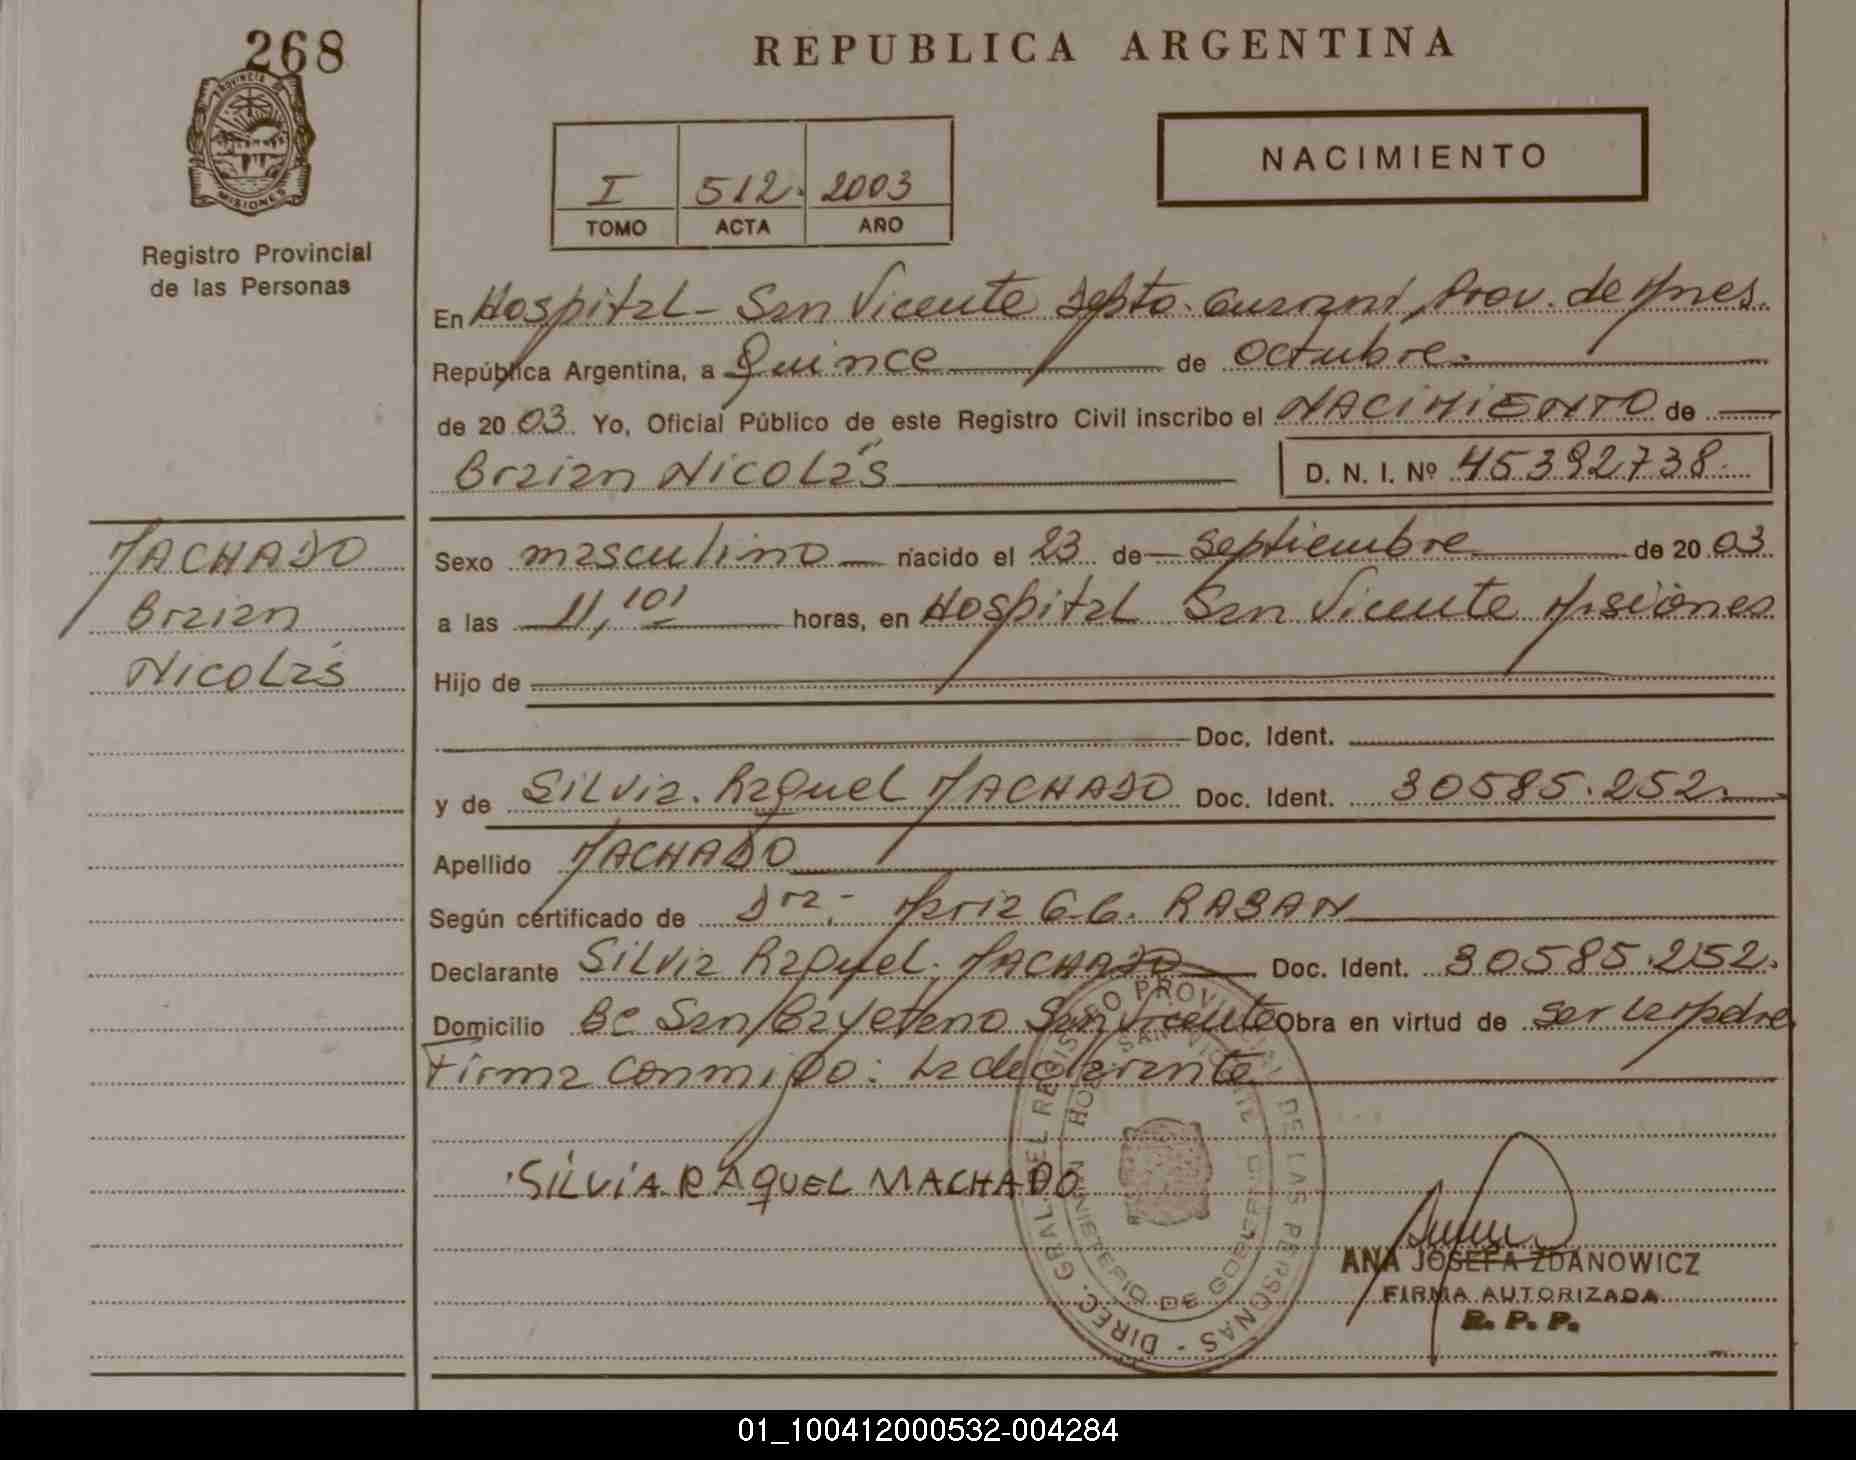 268
PROVINCIA DE
MISIONES
Registro Provincial
de las Personas
REPUBLICA ARGENTINA
I 512. 2003
TOMO ACTA AÑO
NACIMIENTO
En Hospital - San Vicente Depto. Guaraní, Prov. de Mnes.
República Argentina, a Quince de Octubre.
de 2003. Yo, Oficial Público de este Registro Civil inscribo el NACIMIENTO de
Braian Nicolás D. N. I. Nº 45392738.
MACHADO
Braian
Nicolás
Sexo masculino nacido el 23 de Septiembre de 2003
a las 11,10 horas, en Hospital San Vicente Misiones
Hijo de
Doc. Ident.
y de Silvia Raquel MACHADO Doc. Ident. 30585.252.
Apellido MACHADO
Según certificado de Dra. María G.G. RABAN
Declarante Silvia Raquel MACHADO Doc. Ident. 30585.252.
Domicilio Bº San Cayetano San Vicente Obra en virtud de ser la madre
Firma Conmigo: La declarante
SILVIA RAQUEL MACHADO
DIREC. GRAL. DEL REGISTRO PROVINCIAL DE LAS PERSONAS -
SAN VICENTE
MINISTERIO DE GOBIERNO
ANA JOSEFA ZDANOWICZ
FIRMA AUTORIZADA
R. P. P.
01_100412000532-004284